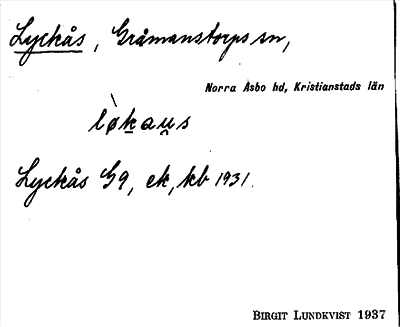 Lyckås, Gråmanstorps sn,
Norra Åsbo hd, Kristianstads län
lø̀ka̠u̯s
Lyckås G9, ek, kb 1931.
BIRGIT LUNDKVIST 1937